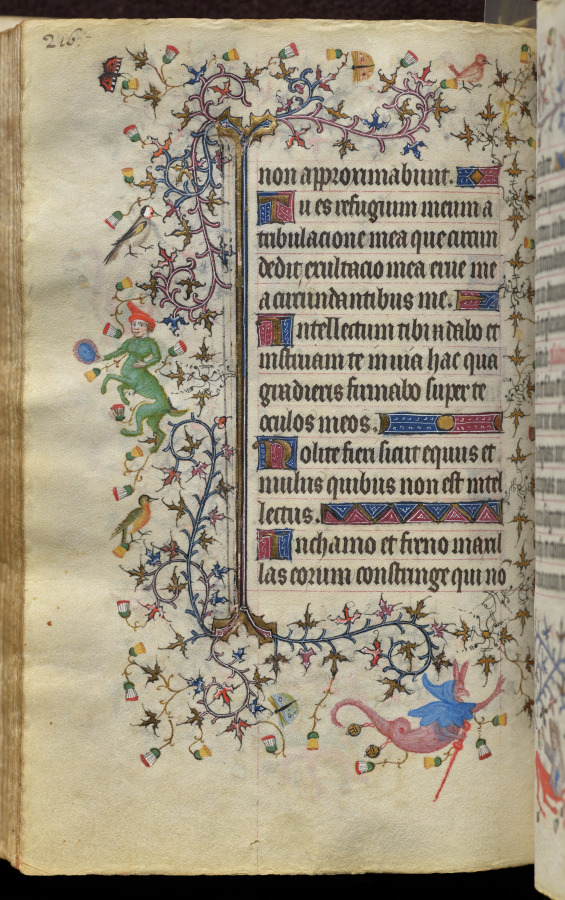 216.
non approximabunt.
Tu es refugium meum a
tribulacione mea que circun
dedit exultacio mea erue me
a circundantibus me.
Intellectum tibi dabo et
instruam te in uia hac qua
gradieris firmabo super te
oculos meos.
Nolite fieri sicut equus et
mulus quibus non est intel
lectus.
In chamo et freno maxil
las eorum constringe qui nõ